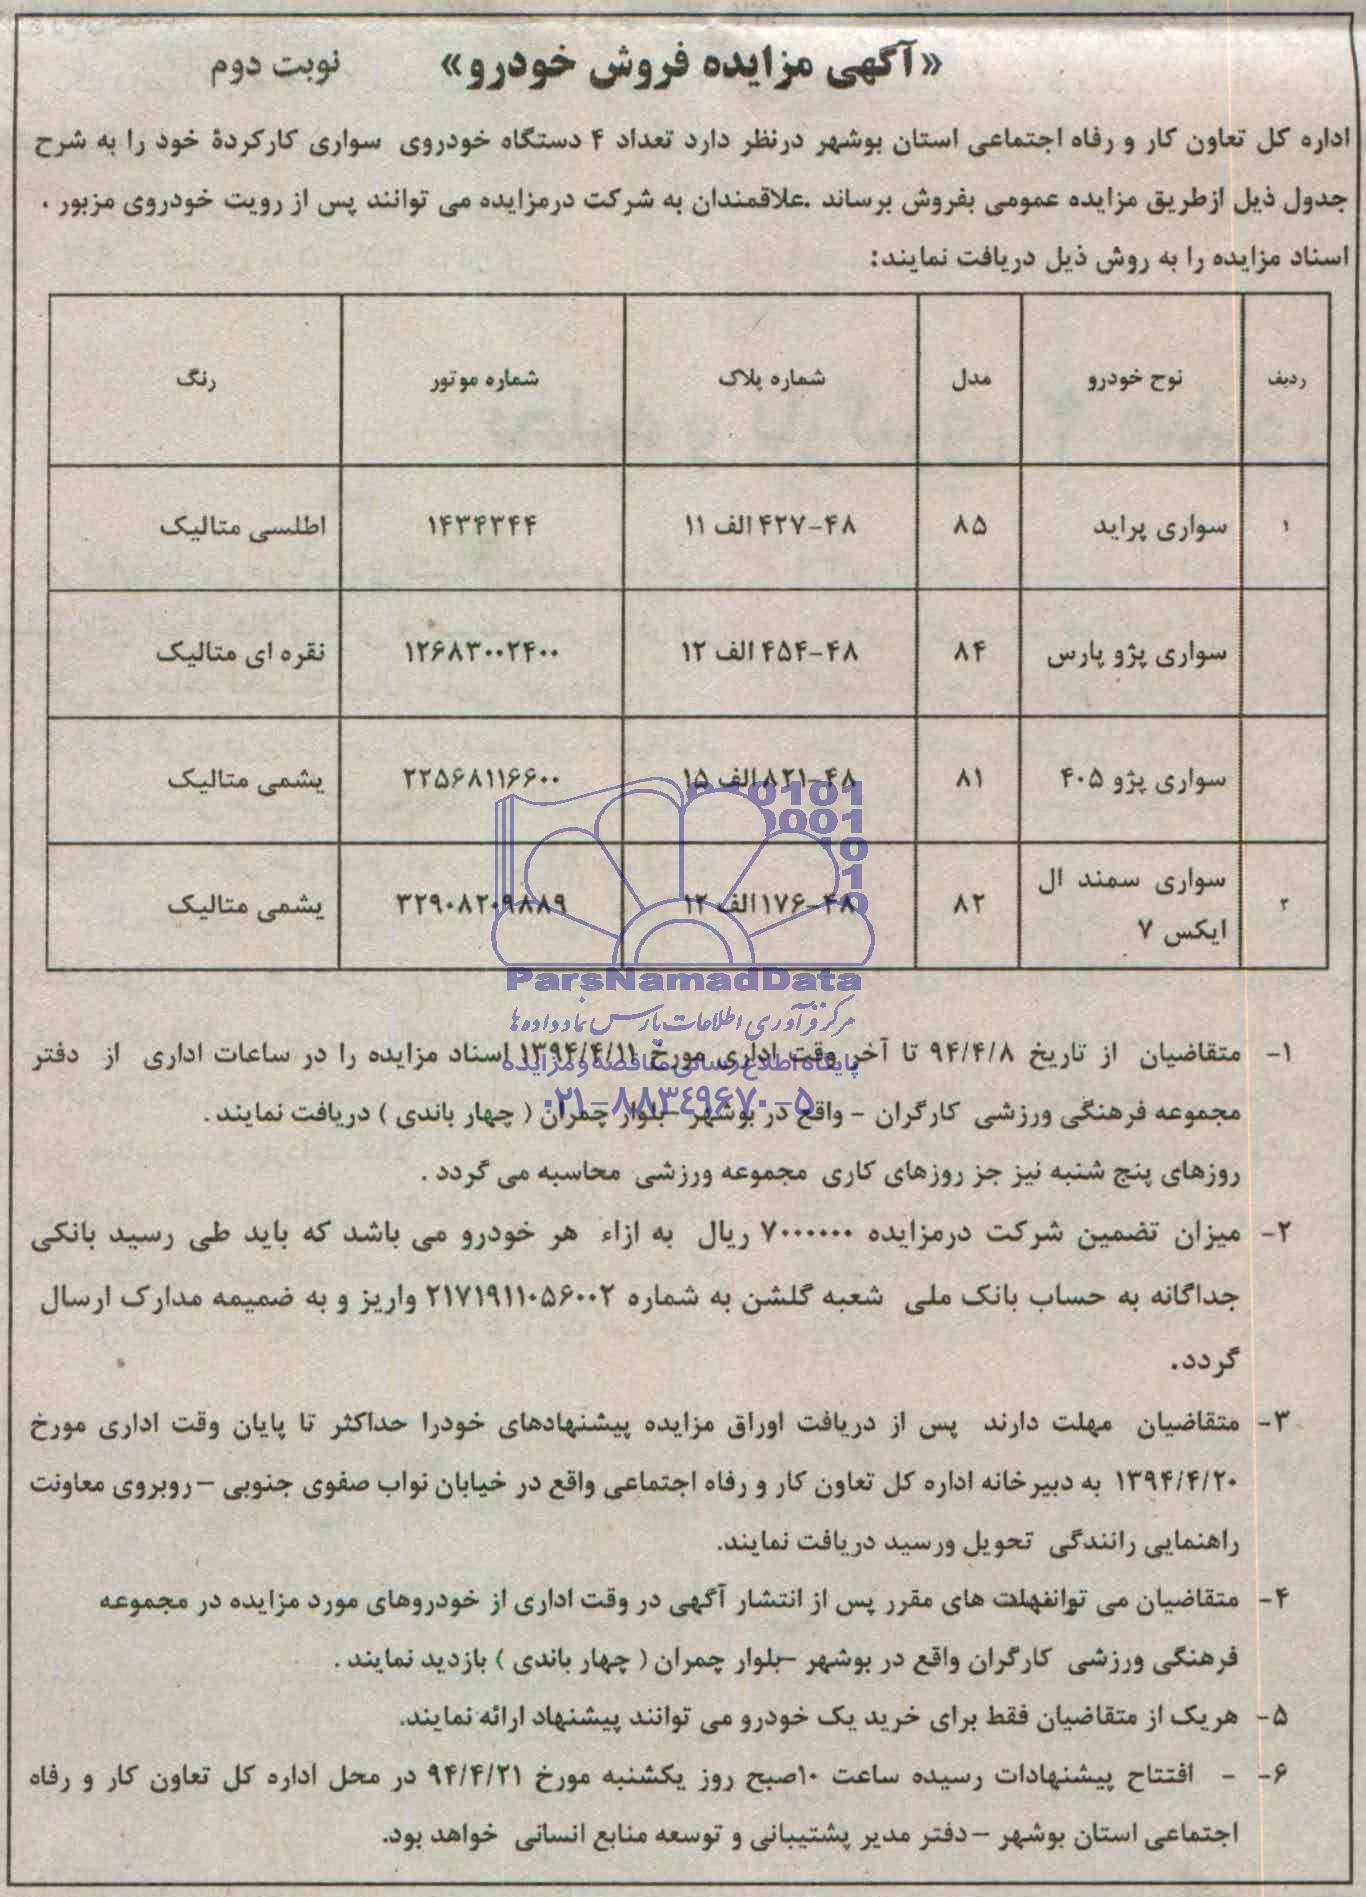 «آگهی مزایده فروش خودرو» نوبت دوم
اداره کل تعاون کار و رفاه اجتماعی استان بوشهر درنظر دارد تعداد ۴ دستگاه خودروی سواری کارکردۀ خود را به شرح
جدول ذیل ازطریق مزایده عمومی بفروش برساند .علاقمندان به شرکت درمزایده می توانند پس از رویت خودروی مزبور ،
اسناد مزایده را به روش ذیل دریافت نمایند:
ردیف نوح خودرو مدل شماره پلاک شماره موتور رنگ
۱ سواری پراید ۸۵ ۴۸-۴۲۷ الف ۱۱ ۱۴۳۴۳۴۴ اطلسی متالیک
سواری پژو پارس ۸۴ ۴۸-۴۵۴ الف ۱۲ ۱۲۶۸۳۰۰۲۴۰۰ نقره ای متالیک
سواری پژو ۴۰۵ ۸۱ ۴۸-۸۲۱ الف ۱۵ ۲۲۵۶۸۱۱۶۶۰۰ یشمی متالیک
۲ سواری سمند ال
ایکس ۷ ۸۲ ۴۸-۱۷۶ الف ۱۲ ۳۲۹۰۸۲۰۹۸۸۹ یشمی متالیک
ParsNamadData
مرکز فرآوری اطلاعات پارس نماد داده ها
پایگاه اطلاع رسانی مناقصه و مزایده
۰۲۱-۸۸۳۴۹۶۷۰-۵
۱- متقاضیان از تاریخ ۹۴/۴/۸ تا آخر وقت اداری مورخ ۱۳۹۴/۴/۱۱ اسناد مزایده را در ساعات اداری از دفتر
مجموعه فرهنگی ورزشی کارگران - واقع در بوشهر -بلوار چمران ( چهار باندی ) دریافت نمایند .
روزهای پنج شنبه نیز جز روزهای کاری مجموعه ورزشی محاسبه می گردد .
۲- میزان تضمین شرکت درمزایده ۷۰۰۰۰۰۰ ریال به ازاء هر خودرو می باشد که باید طی رسید بانکی
جداگانه به حساب بانک ملی شعبه گلشن به شماره ۲۱۷۱۹۱۱۰۵۶۰۰۲ واریز و به ضمیمه مدارک ارسال
گردد.
۳- متقاضیان مهلت دارند پس از دریافت اوراق مزایده پیشنهادهای خودرا حداکثر تا پایان وقت اداری مورخ
۱۳۹۴/۴/۲۰ به دبیرخانه اداره کل تعاون کار و رفاه اجتماعی واقع در خیابان نواب صفوی جنوبی –روبروی معاونت
راهنمایی رانندگی تحویل ورسید دریافت نمایند.
۴- متقاضیان می های مقرر پس از انتشار آگهی در وقت اداری از خودروهای مورد مزایده در مجموعه
فرهنگی ورزشی کارگران واقع در بوشهر -بلوار چمران ( چهار باندی ) بازدید نمایند .
۵- هریک از متقاضیان فقط برای خرید یک خودرو می توانند پیشنهاد ارائه نمایند.
۶- - افتتاح پیشنهادات رسیده ساعت ۱۰صبح روز یکشنبه مورخ ۹۴/۴/۲۱ در محل اداره کل تعاون کار و رفاه
اجتماعی استان بوشهر –دفتر مدیر پشتیبانی و توسعه منابع انسانی خواهد بود.